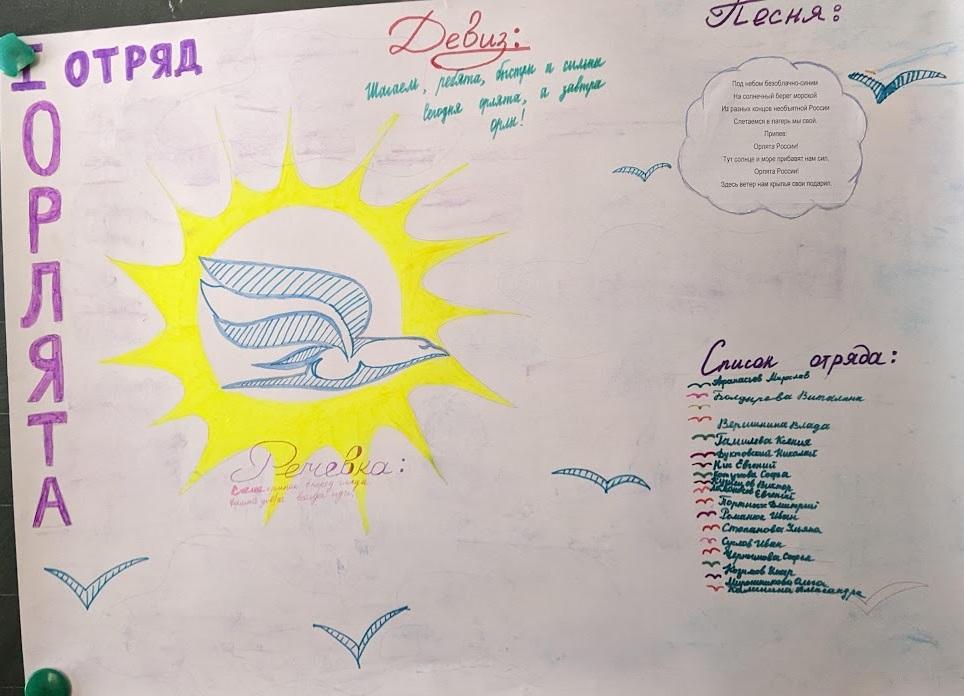 I ОТРЯД
ОРЛЯТА
Девиз:
Шагаем, ребята, быстры и сильны
Сегодня орлята, а завтра
орлы!
Песня:
Под небом безоблачно-синим
На солнечный берег морской
Из разных концов необъятной России
Слетаемся в лагерь мы свой.
Припев:
Орлята России!
Тут солнце и море прибавят нам сил,
Орлята России!
Здесь ветер нам крылья свои подарил.
Речевка:
вперед
Список отряда:
Афанасьев Мирослав
Болдырева Виталина
Вершинина Влада
Гамилева Ксения
Дуктовский Николай
Евгений
Софья
Кузнецов Виктор
Евгений
Портных Дмитрий
Романюк Иван
Степанова Ульяна
Суслов Иван
Чернышова Софья
Козимов
Мирошникова Ольга
Калинина Александра